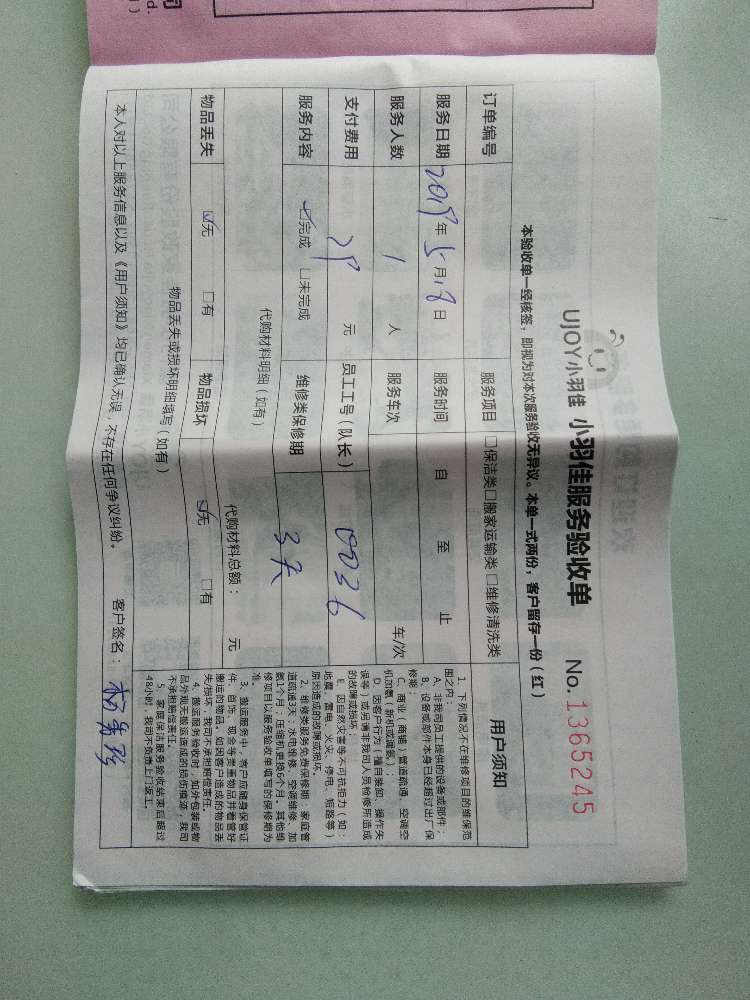 UJOY小羽佳 小羽佳服务验收单 No. 1365245
本验收单一经核签，即视为对本次服务验收无异议。本单一式两份，客户留存一份（红）
订单编号 服务项目 □保洁类□搬家运输类□维修清洗类
服务日期 2019年5月18日 服务时间 自 至 止
服务人数 1 人 服务车次 车/次
支付费用 元 员工工号（队长） 0036
服务内容 ☑完成 □未完成 维修类保修期 3天
代购材料明细（如有） 代购材料总额： 元
物品丢失 ☑无 □有 物品损坏 ☑无 □有
物品丢失或损坏明细填写（如有）
本人对以上服务信息以及《用户须知》均已确认无误，不存在任何争议纠纷。 客户签名：
用户须知
1、下列情况不在维修项目的维保范
围之内：
A、非我司员工提供的设备或部件；
B、设备或部件本身已经超过出厂保
修期；
C、商业（商铺）管道疏通、空调空
机加氨（新机或漏氨）；
D、因客户行为（擅自装卸、操作失
误等）或另请非我司人员检修所造成
的故障或损坏；
E、因自然灾害等不可抗拒力（如：
地震、雷电、火灾、停电、短路等）
原因造成的故障或损坏。
2、维修类服务免费保修期：家庭管
道疏通3天；水电维修、空调维修、加
氨1个月；压缩机更换6个月。其他维
修项目以服务验收单填写的保修期为
准。
3、搬运服务中，客户应随身保管证
件、首饰、现金等贵重物品并看管好
搬运的物品。如因客户造成的物品丢
失/损坏，我司不承担赔偿责任。
4、搬运服务验收时，如外包装或物
品外观无搬运造成的损伤痕迹，我司
不承担赔偿责任。
5、家庭保洁服务验收结束后超过
48小时，我司不负责上门返工。